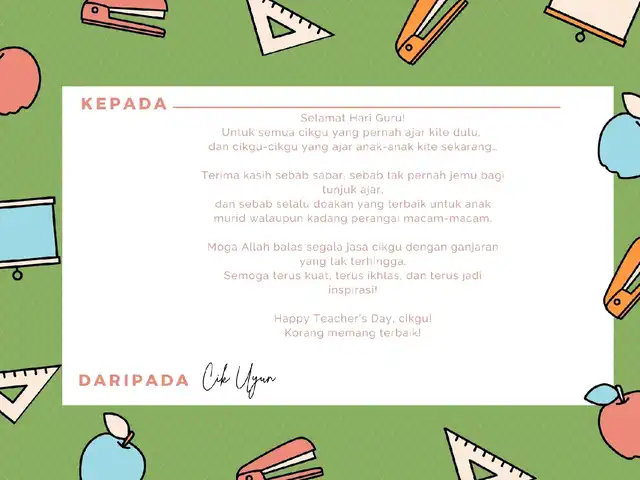 KEPADA
Selamat Hari Guru!
Untuk semua cikgu yang pernah ajar kite dulu,
dan cikgu-cikgu yang ajar anak-anak kite sekarang…
Terima kasih sebab sabar, sebab tak pernah jemu bagi
tunjuk ajar,
dan sebab selalu doakan yang terbaik untuk anak
murid walaupun kadang perangai macam-macam.
Moga Allah balas segala jasa cikgu dengan ganjaran
yang tak terhingga.
Semoga terus kuat, terus ikhtas, dan terus jadi
inspirasi!
Happy Teacher's Day, cikgu!
Korang memang terbaik!
DARIPADA Cik Uyun